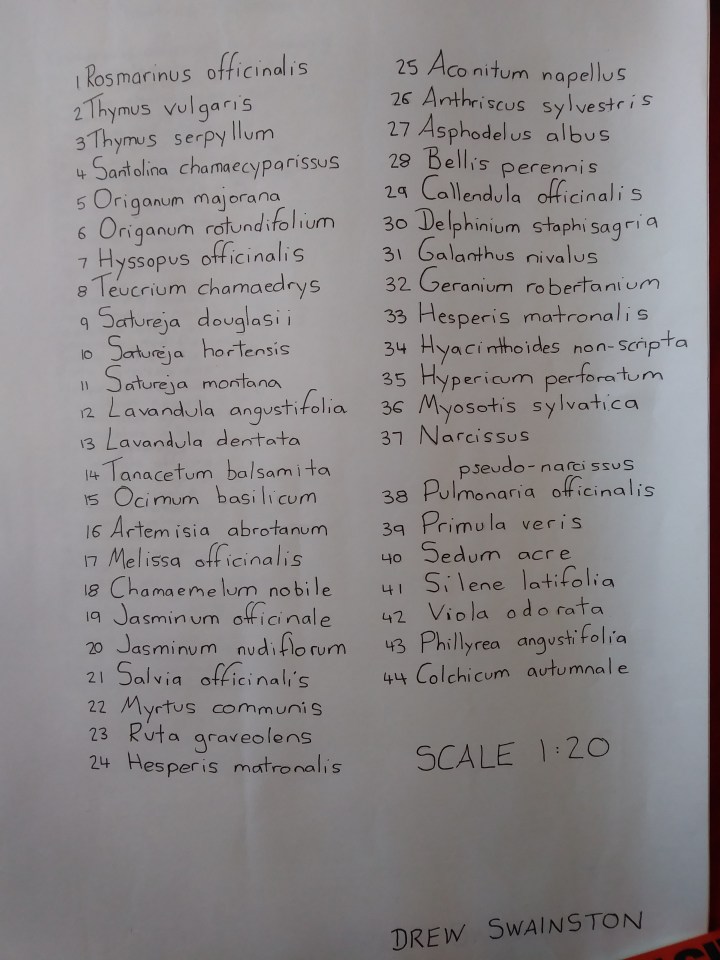 1 Rosmarinus officinalis
2 Thymus vulgaris
3 Thymus serpyllum
4 Santolina chamaecyparissus
5 Origanum majorana
6 Origanum rotundifolium
7 Hyssopus officinalis
8 Teucrium chamaedrys
9 Satureja douglasii
10 Satureja hortensis
11 Satureja montana
12 Lavandula angustifolia
13 Lavandula dentata
14 Tanacetum balsamita
15 Ocimum basilicum
16 Artemisia abrotanum
17 Melissa officinalis
18 Chamaemelum nobile
19 Jasminum officinale
20 Jasminum nudiflorum
21 Salvia officinalis
22 Myrtus communis
23 Ruta graveolens
24 Hesperis matronalis
25 Aconitum napellus
26 Anthriscus sylvestris
27 Asphodelus albus
28 Bellis perennis
29 Callendula officinalis
30 Delphinium staphisagria
31 Galanthus nivalus
32 Geranium robertanium
33 Hesperis matronalis
34 Hyacinthoides non-scripta
35 Hypericum perforatum
36 Myosotis sylvatica
37 Narcissus
pseudo-narcissus
38 Pulmonaria officinalis
39 Primula veris
40 Sedum acre
41 Silene latifolia
42 Viola odorata
43 Phillyrea angustifolia
44 Colchicum autumnale
SCALE 1:20
DREW SWAINSTON